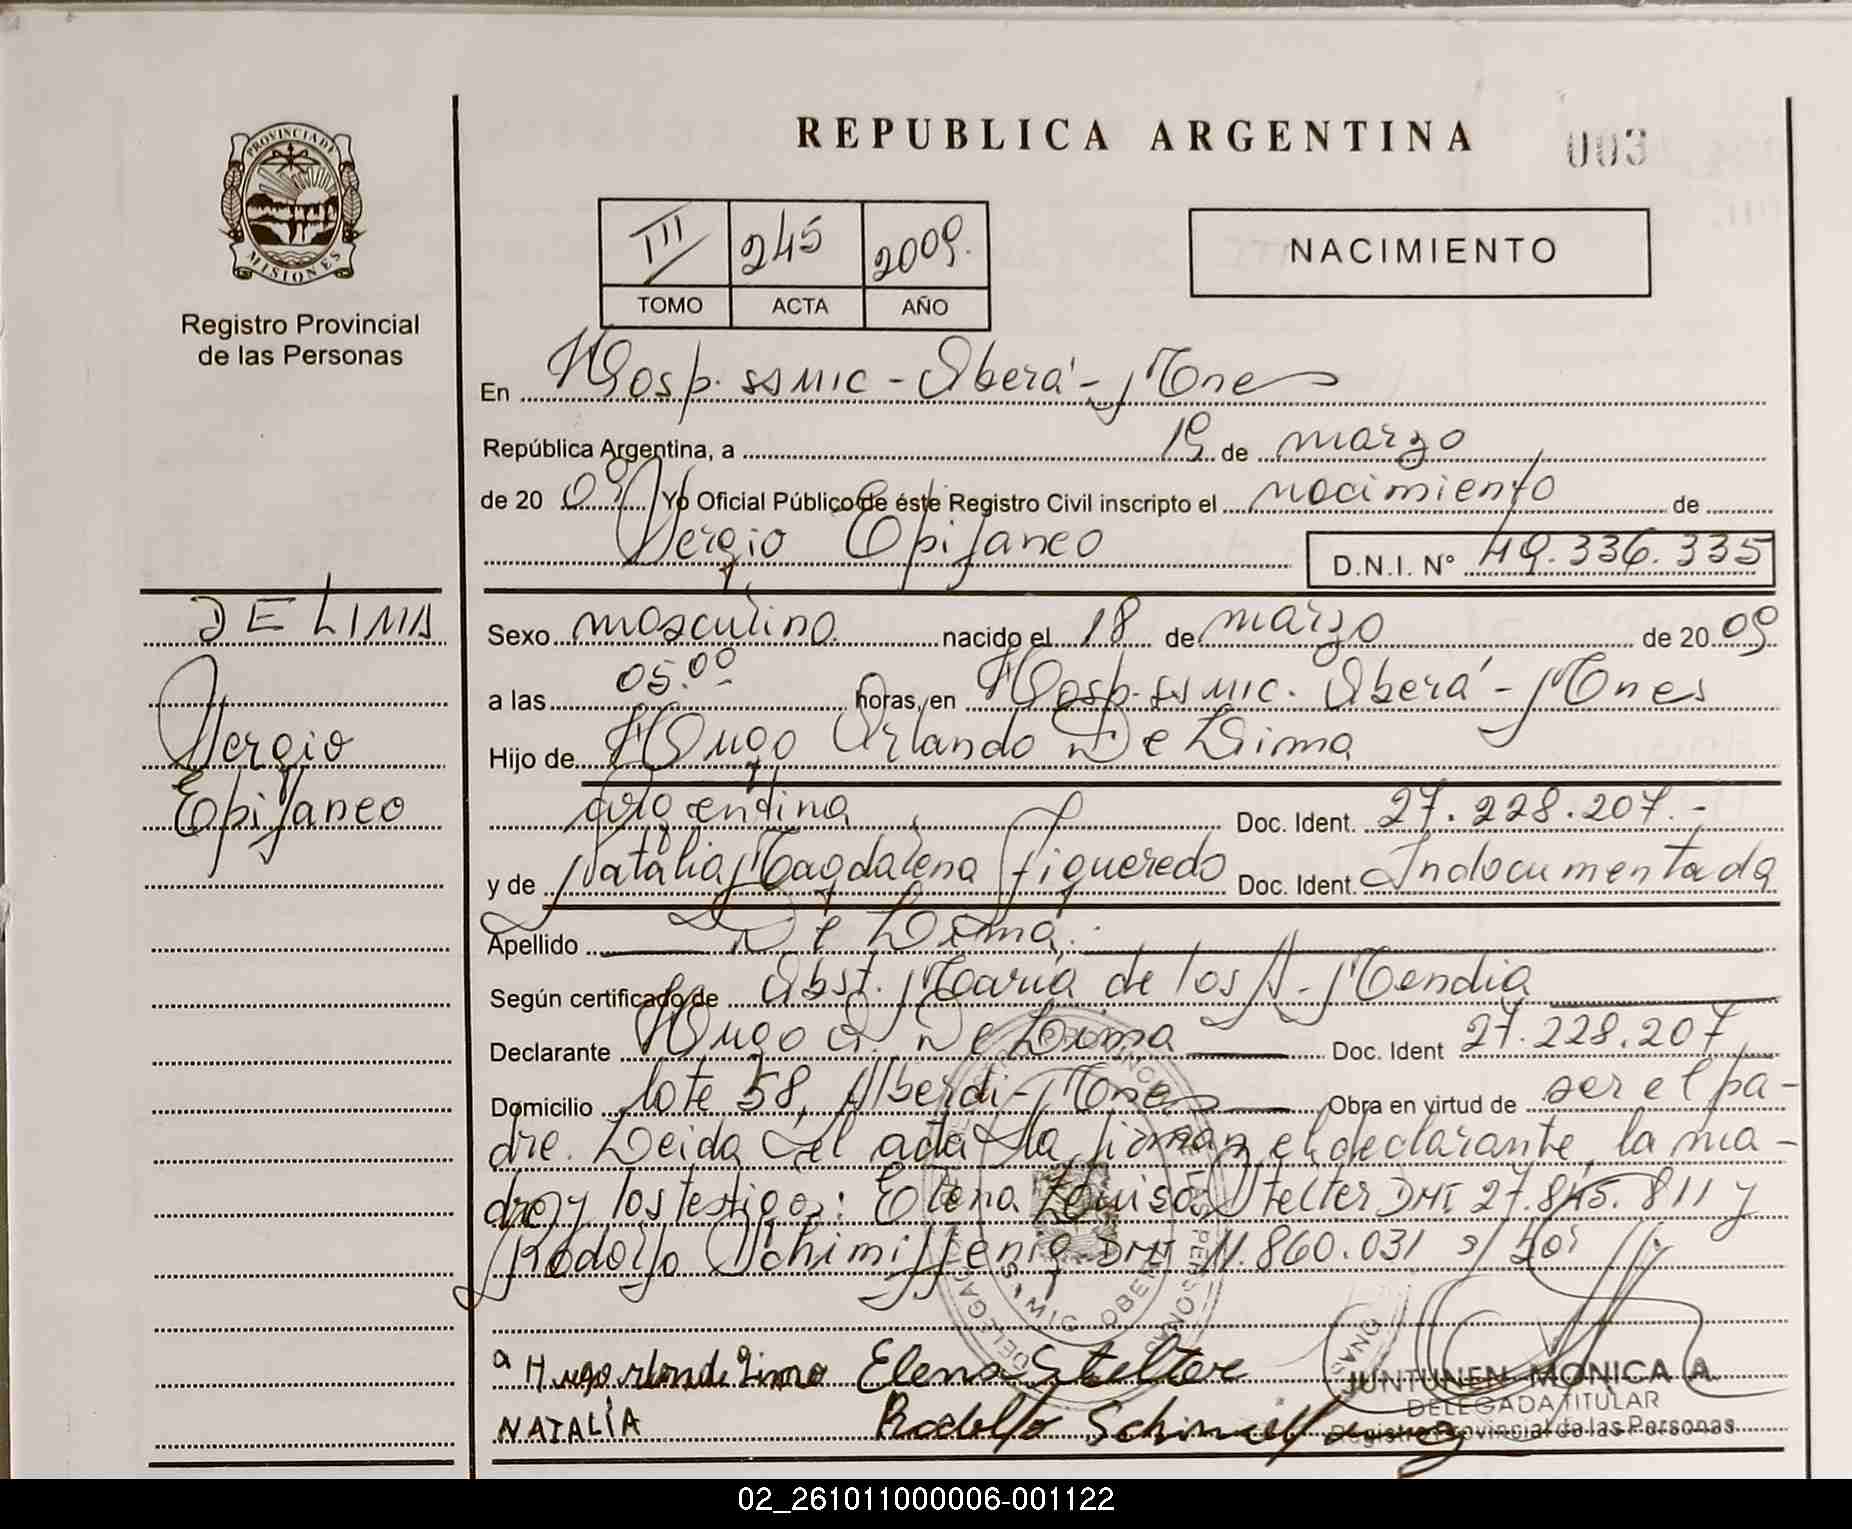 REPUBLICA ARGENTINA
003
PROVINCIA DE
MISIONES
Registro Provincial
de las Personas
III 245 2009.
TOMO ACTA AÑO
NACIMIENTO
En Hosp. SSMIC - Oberá - Mnes
República Argentina, a 19 de marzo
de 20 09 Yo Oficial Público de éste Registro Civil inscripto el nacimiento de
Sergio Epifaneo D.N.I. Nº 49.336.335
DE LIMA
Sergio
Epifaneo
Sexo masculino nacido el 18 de marzo de 20 09
a las 05.00 horas, en Hosp. SSMIC. Oberá - Mnes
Hijo de Hugo Orlando De Lima
argentina Doc. Ident. 27.228.207.-
y de Natalia Magdalena Figueredo Doc. Ident. Indocumentada
Apellido De Lima.
Según certificado de Obst. María de los A. Mendia
Declarante Hugo O. De Lima Doc. Ident 27.228.207
Domicilio lote 58, Alberdi - Mnes Obra en virtud de ser el pa-
dre. Leida el acta la firman el declarante, la ma-
dre y los testigos: Elena Luisa Stelter DNI 27.845.811 y
Rodolfo DNI 11.860.031
Hugo De Lima Elena Stelter
NATALÍA Rodolfo
JUNTUNEN MONICA A.
DELEGADA TITULAR
Registro Provincial de las Personas
02_261011000006-001122